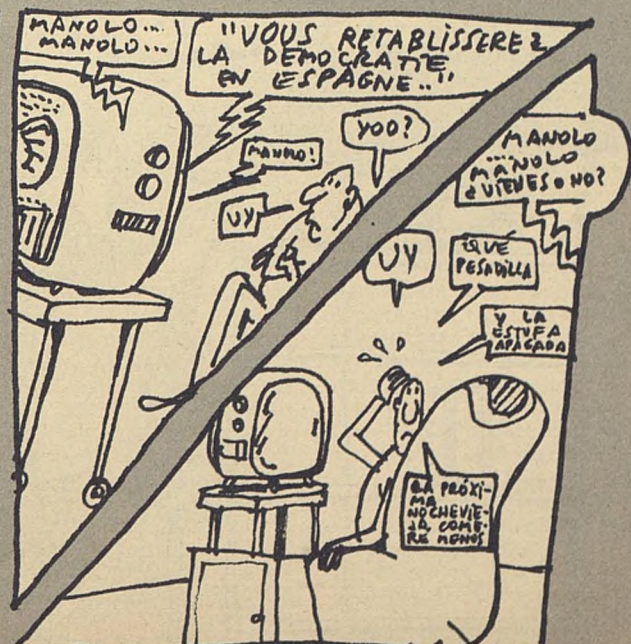 MANOLO...
MANOLO...
"VOUS RETABLISSEREZ
LA DEMOCRATIE
EN ESPAGNE.."
MANOLO!
YOO?
UY
MANOLO
...MANOLO
¿VIENES O NO?
UY
¡QUÉ
PESADILLA
Y LA
ESTUFA
APAGADA
LA PRÓXI-
MA
NOCHEVIE-
JA, COME-
RE MENOS